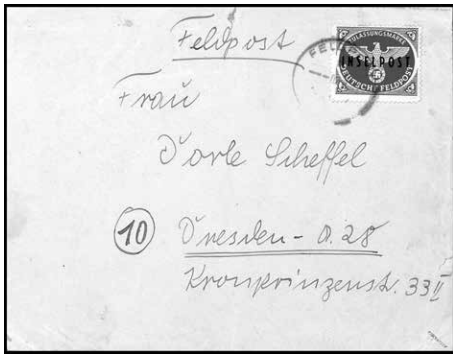 Feldpost
FELDP
ZULASSUNGSMARKE
INSELPOST
DEUTSCHE FELDPOST
Frau
Dorle Scheffel
10 Dresden - A. 28
Kronprinzenst. 33 II